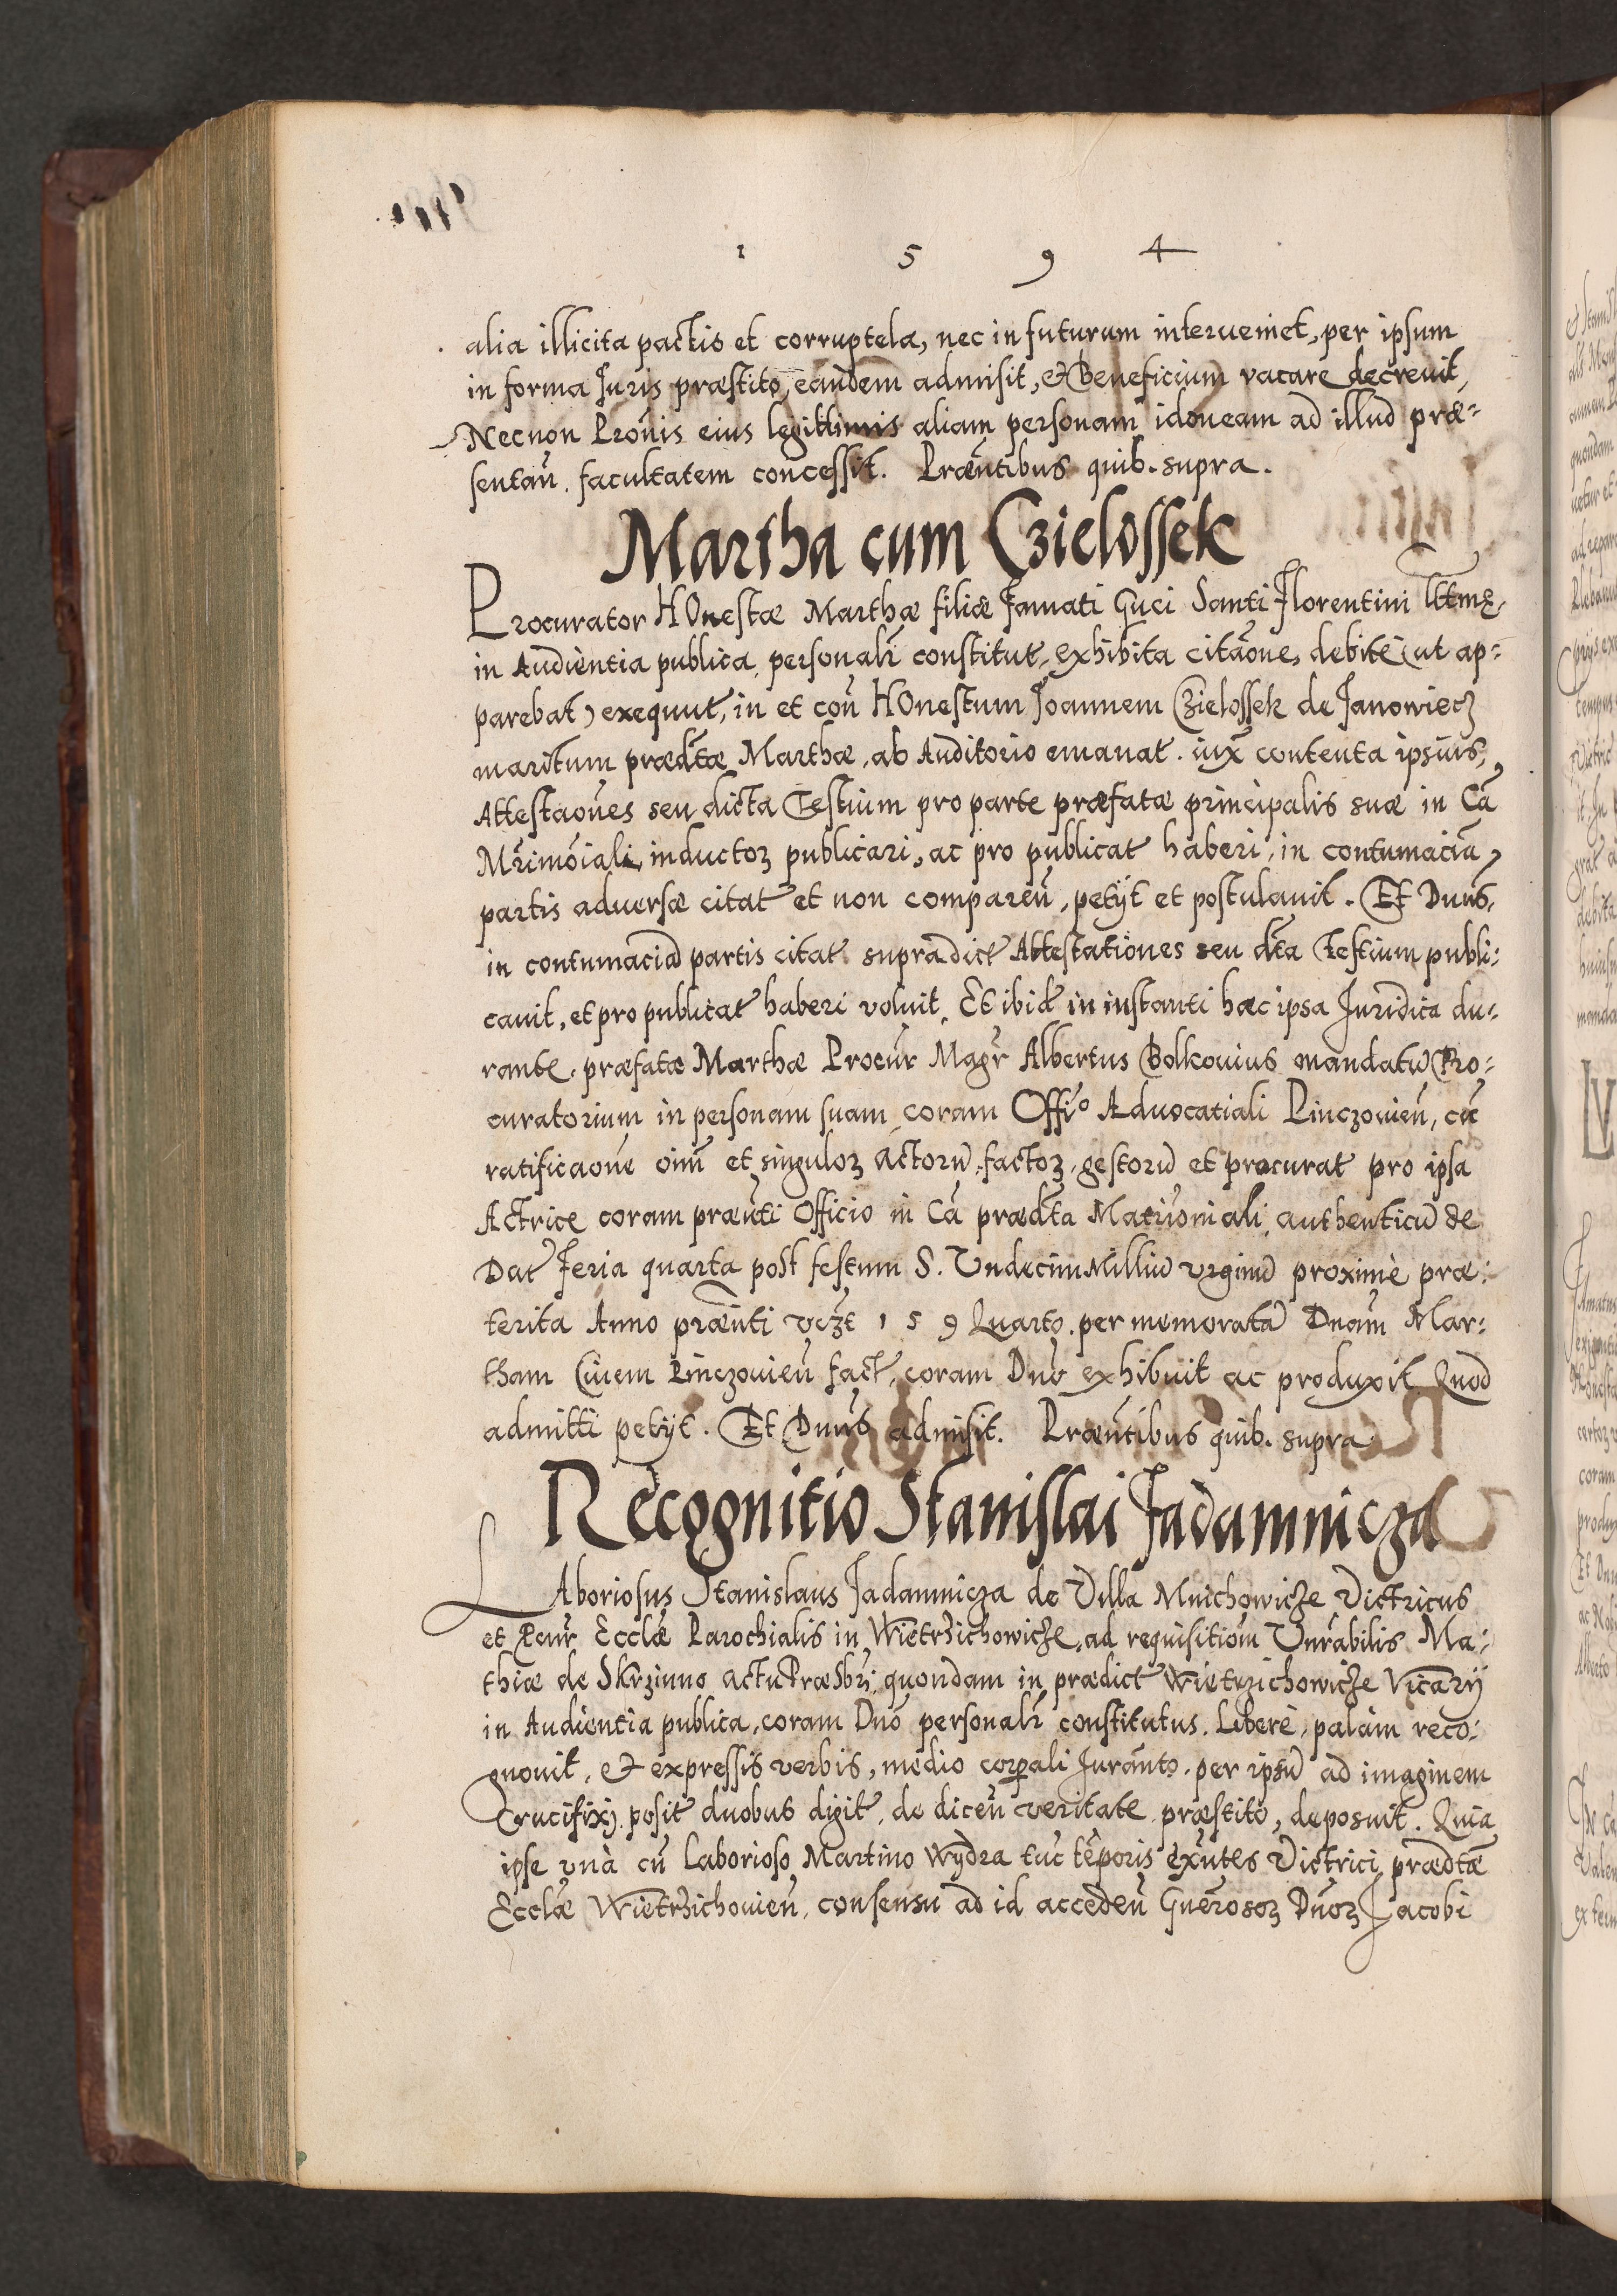 1 5 9 4
alia illicita pactis et corruptela, nec in futurum interueniet, per ipsum
in forma Juris præstito, eandem admisit, et Beneficium vacare decreuit,
Necnon Pronis eius legittimis aliam personam idoneam ad illud præ=
sentan̄. facultatem concessit. Præn̄tibus quib. supra.
Martha cum Czielossek
Procurator HOnestæ Marthæ filiæ Famati Guci Santi Florentini lttmę,
in Audientia publica, personalr̄ constitut, exhibita citaōne, debite (ut ap=
parebat) exequut, in et con̄ HOnestum Joannem Czielossek de Janowiecz
maritum prædtæ Marthæ, ab Auditorio emanat. iux̄ contenta ipsius,
Attestaōnes seu dicta Testium pro parte præfatæ principalis suæ in Cā
Mr̄imoīali, inductoꝝ publicari, ac pro publicat haberi, in contumaciā,
partis aduersæ citat et non comparen̄, petyt et postulauit. Et Dnus,
in contumaciā partis citat supradict Attestationes seu dta Testium publi=
cauit, et pro publicat haberi voluit. Et ibid in instanti hæc ipsa Juridica du=
rante, præfatæ Marthæ Procur̄ Magr̄ Albertus Bolkouius mandatū Pro=
curatorium in personam suam coram Offio Aduocatiali Pinczouien̄, cū
ratificaōne oīm et singuloꝝ actorū, factoꝝ, gestorū et procurat pro ipsa
Actrice coram præn̄ti Officio in Cā prædta Matrīoniali, authenticū de
Dat Feria quarta post festum S. Undecim Milliū vrginū proximè præ=
terita Anno præn̄ti vcꝫt 1 5 9 Quarto. per memoratā Dnam Mar=
tham Ciuem Pinczouien̄ fact, coram Dno exhibuit ac produxit. Quod
admitti petyt. Et Dnus admisit. Præn̄tibus quib. supra.
Recognitio Stanislai Jadamnicza
LAboriosus Stanislaus Jadamnicza de Villa Mnichowicze Victricus
et Ecclæ Parochialis in Wietrzichowicze, ad requisitiōm Vnrabilis Ma=
thiæ de Skrzinno actu Præsbrī, quondam in prædict Wietrzichowicze Vicarÿ
in Audientia publica, coram Dno personalr̄ constitutus. Liberè, palàm reco=
gnouit, et expressis verbis, medio corꝑali Juran̄to, per ipsū ad imaginem
Crucifixi posit duobus digit, de dicen̄ veritate præstito, deposuit. Quia
ipse vnà cū Laborioso Martino Wydra tūc tēporis exn̄tes Victrici prædtæ
Ecclæ Wietrzichouien̄, consensu ad id acceden̄ Gnerosoꝝ Dnoꝝ Jacobi